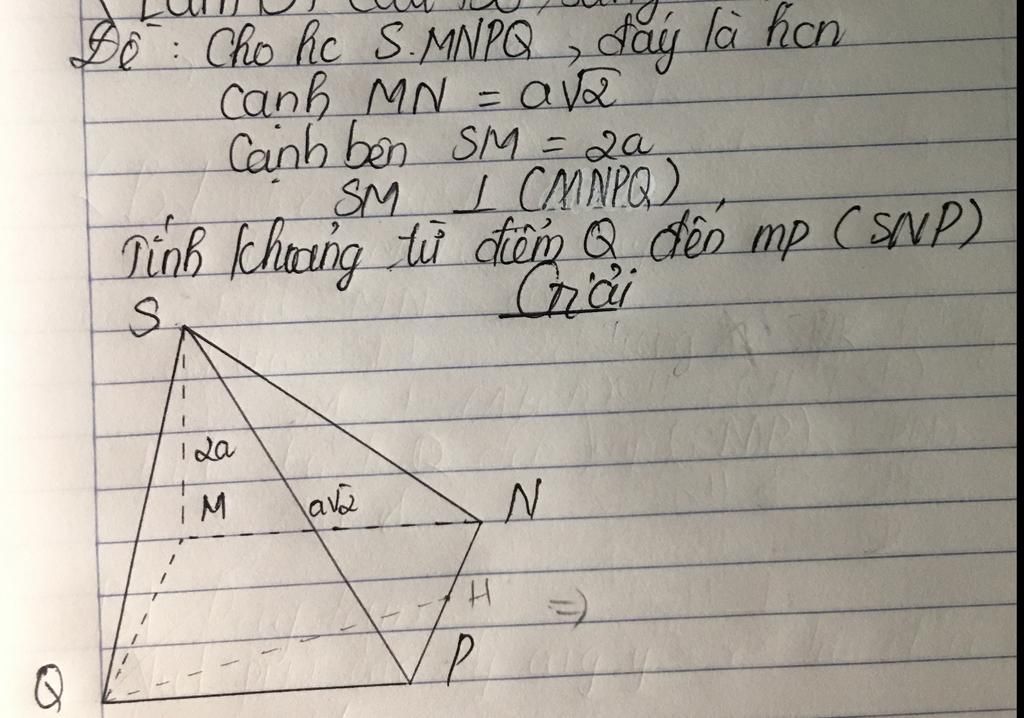 Đề : Cho hc S.MNPQ, đáy là hcn
Cạnh MN = a√2
Cạnh bên SM = 2a
SM ⊥ (MNPQ)
Tính khoảng từ điểm Q đến mp (SNP)
Giải
S
2a
M a√2 N
H =>
P
Q